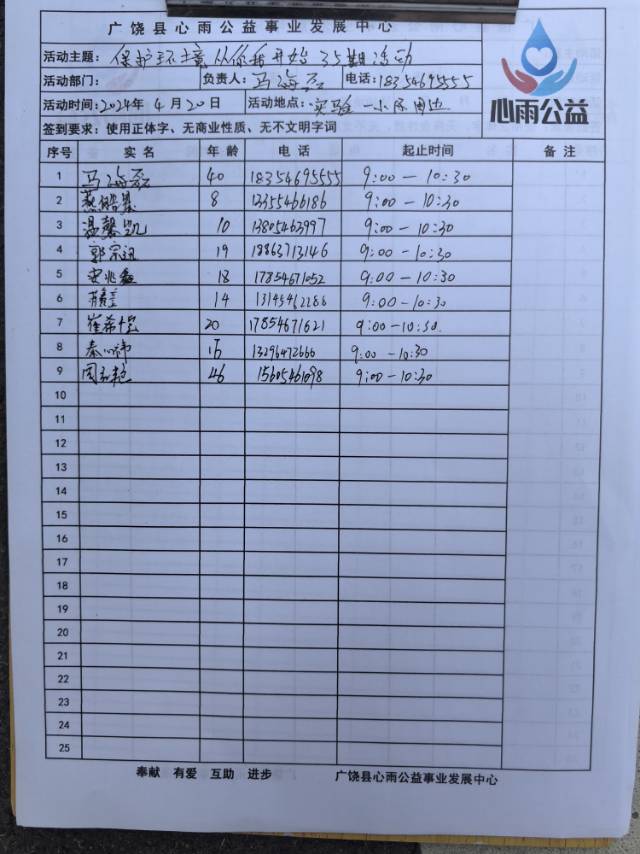 广饶县心雨公益事业发展中心
活动主题：保护环境从你我开始35期活动
活动部门： 负责人：马海磊 电话：18354695555
活动时间：2024年4月20日 活动地点：实验一小及周边
签到要求：使用正体字、无商业性质、无不文明字词
心雨公益
序号 实名 年龄 电话 起止时间 备注
1 马海磊 40 18354695555 9:00－10:30
2 8 13355466186 9:00－10:30
3 温馨凯 10 13805463997 9:00－10:30
4 郭宗迅 19 18863713146 9:00－10:30
5 安兆鑫 18 17854671052 9:00－10:30
6 14 9:00－10:30
7 崔希恺 20 17854671621 9:00－10:30
8 秦心祎 13296472666 9:00－10:30
9 46 15605461098 9:00－10:30
10
11
12
13
14
15
16
17
18
19
20
21
22
23
24
25
奉献 有爱 互助 进步 广饶县心雨公益事业发展中心